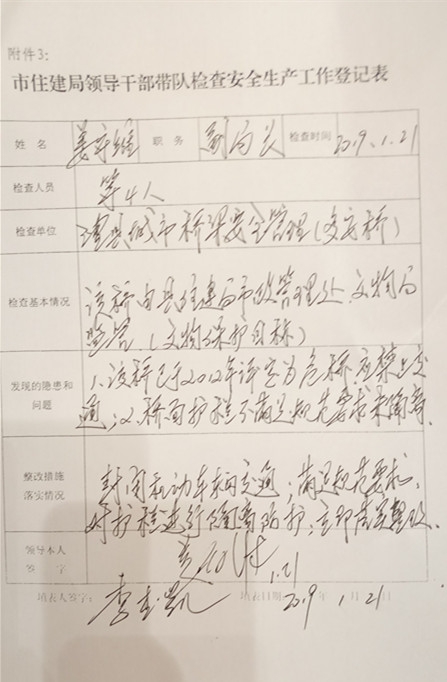 附件3:
市住建局领导干部带队检查安全生产工作登记表
姓 名 姜 职 务 副局长 检查时间 2019.1.21
检查人员 等4人
检查单位 城市桥梁安全管理(文家桥)
检查基本情况 该桥由县住建局市政管理处、文物局
监管(文物保护目标)
发现的隐患和 1、该桥已于2012年评定为危桥,应禁止交
问题 通;2、桥面护栏不满足规范要求
整改措施 封闭机动车辆交通;满足规范要求,
落实情况 对护栏进行 防护,立即落实整改.
领导本人
签 字 1.21
填表人签字: 李 凯 填表日期: 2019 年 1.21